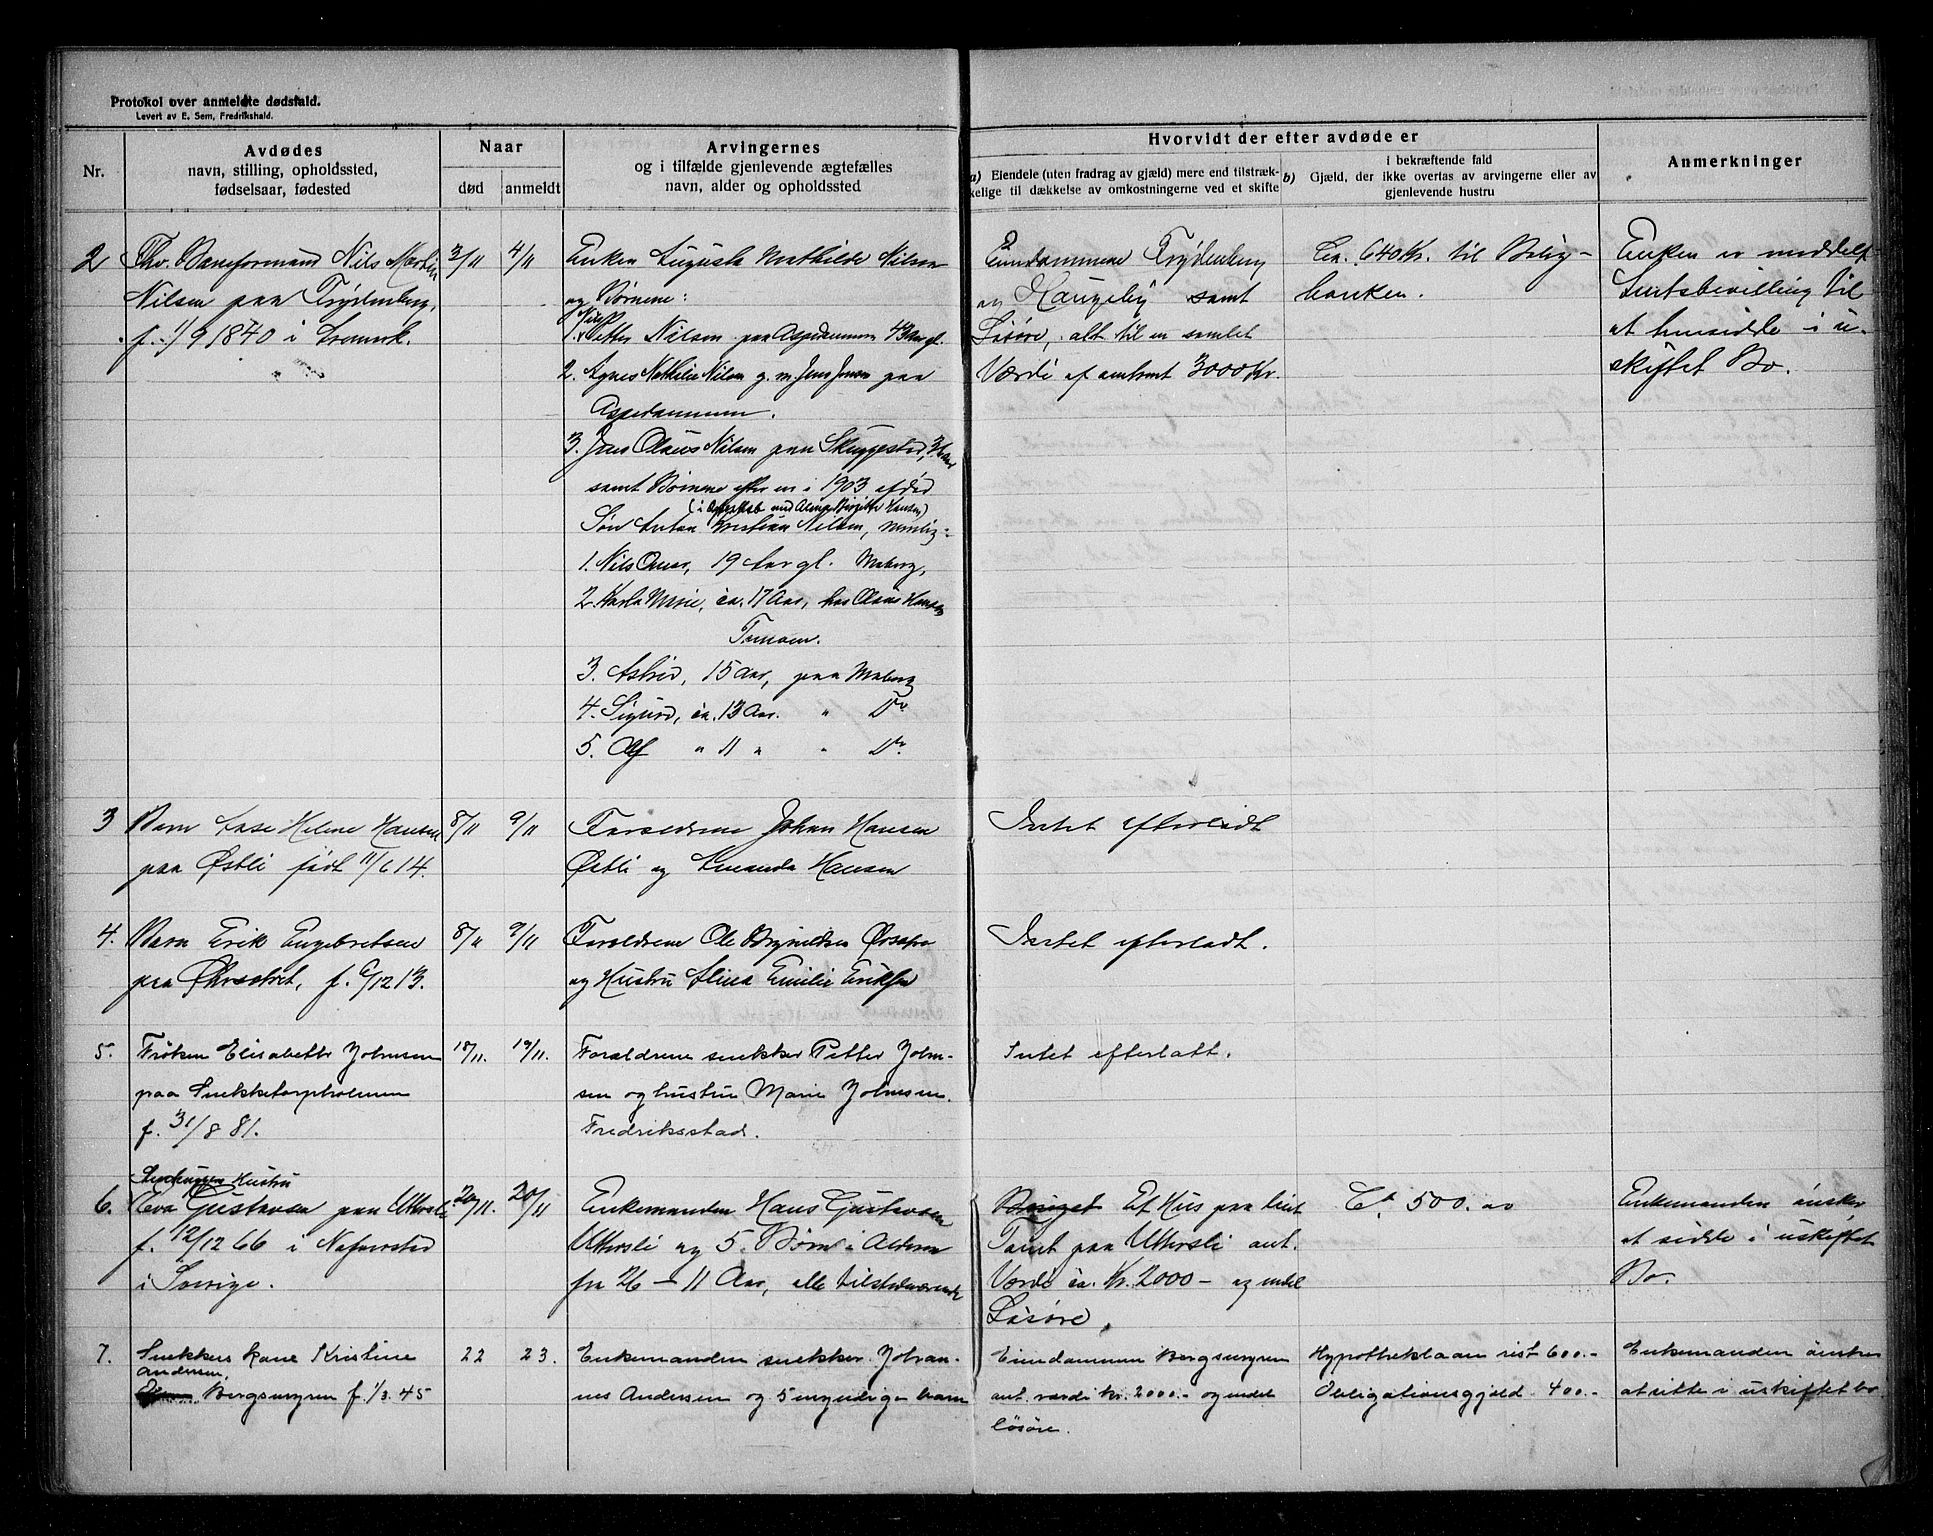 Protokol over anmeldte dødsfald.
Levert av E. Sem, Fredrikshald.
Nr.
Avdødes
navn, stilling, opholdssted,
fødselsaar, fødested
Naar
død
anmeldt
Arvingernes
og i tilfælde gjenlevende ægtefælles
navn, alder og opholdssted
Hvorvidt der efter avdøde er
a) Eiendele (uten fradrag av gjæld) mere end tilstræk-
kelige til dækkelse av omkostningerne ved et skifte
i bekræftende fald
b) Gjæld, der ikke overtas av arvingerne eller av
gjenlevende hustru
Anmerkninger
2
Fhv. Baneformand Nils Martin
Nilsen paa Frydenberg,
f. 1/9 1840 i
3/11
4/11
Enken Augusta Mathilde Nilsen
og Børnene:
1. Petter Nilsen paa Aspedammen 43 Aar gl.
2. Agnes Mathilde Nilsen g. m. Jens Jensen paa
Aspedammen.
3. Jens Olaus Nilsen paa Skuggestad, 36 Aar
samt Børnene efter en i 1903 afdød
(i Ægteskab med Alma Birgitte Hansen)
Søn Anton Kristian Nilsen, nemlig:
1. Nils Oskar, 19 Aar gl. Moberg,
2. Karla Marie, ca. 17 Aar, hos Olaus Hansen
3. Astrid, 15 Aar, paa Moberg
4. Sigurd, ca. 13 Aar. " Do
5. Alf " 11 " " Do
Eiendommene Frydenberg
og Haugeby samt
Løsøre, alt til en samlet
Værdi af omtrent 3000 Kr.
Ca. 640 Kr. til Bolig-
banken.
Enken er meddelt
Amtsbevilling til
at hensidde i u-
skiftet Bo.
3
Barn Aase Helene Hansen
paa Østli født 11/6 14.
8/11
9/11
Forældrene Johan Hansen
Østli og Amanda Hansen
Intet efterladt
4.
Barn Erik Engebretsen
paa f. 6/12 13.
8/11
9/11
Forældrene Ole Brynildsen
og Hustru Alina Emilie Eriksen
Intet efterladt.
5.
Frøken Elisabeth Johnsen
paa Snekketorpholmen
f. 31/8 81.
18/11.
19/11.
Forældrene snekker Petter John-
sen og hustru Marie Johnsen.
Fredriksstad.
Intet efterlatt.
6.
Hustru
Eva Gustavsen paa Uttersli
f. 12/12 66 i Nafverstad
i Sverige.
20/11.
20/11
Enkemanden Hans Gustavsen
Uttersli og 5 Børn i Alderen
fra 26 – 11 Aar, alle tilstedeværende
Et Hus paa leiet
Tomt paa Uttersli ant.
Værdi ca. Kr. 2000 – og endel
Løsøre.
Ca. 500.00
Enkemanden ønsker
at sidde i uskiftet
Bo.
7.
Snekkers kone Kristine
Andersen,
Bergsmyren f. 1/3. 45
22
23.
Enkemanden snekker Johan-
nes Andersen og 5 myndige barn
Eiendommen Bergsmyren
ant. værdi kr. 2000.- og endel
løsøre.
Hypotheklaan rest 600.-
Obligationsgjæld 400.-
Enkemanden ønsker
at sitte i uskiftet bo